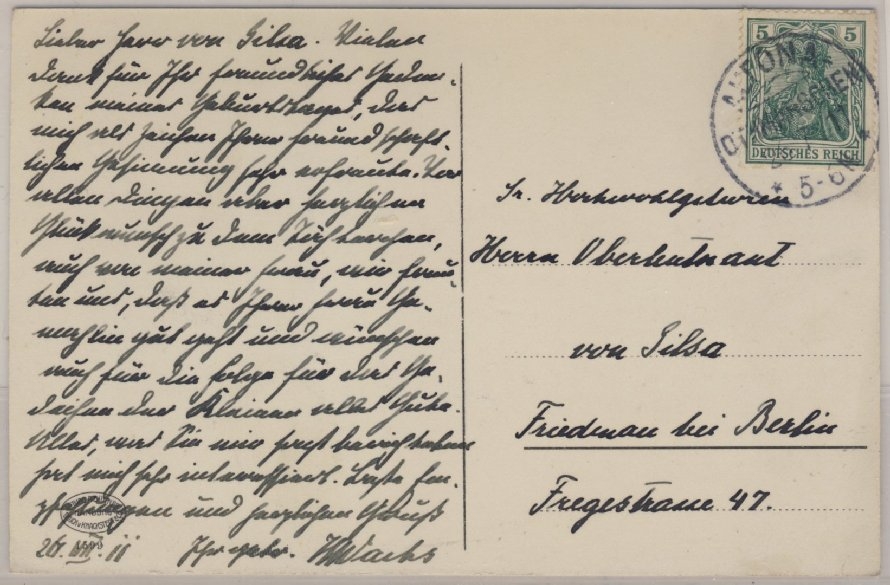 Lieber Herr von Gilsa. Vielen
Dank für Ihr freundliches Geden-
ken meines Geburtstages, das
mich als Zeichen Ihrer freundschaft-
lichen Gesinnung sehr erfreute. Vor
allen Dingen aber herzlichen
Glückwunsch zu dem Töchterchen,
auch von meiner Frau, wir freu-
ten uns, daß es Ihrer Frau Ge-
mahlin gut geht und wünschen
auch für die Folge für das Ge-
deihen der Kleinen alles Gute.
Alles, was Sie mir
hat mich sehr interessiert. Beste Em-
pfehlungen und herzlichen Gruß
Ihr getr. Wachs
5 5
DEUTSCHES REICH
ALTONA
* 5-6
Sr. Hochwohlgeboren
Herrn Oberleutnant
von Gilsa
Friedenau bei Berlin
Fregestrasse 47.